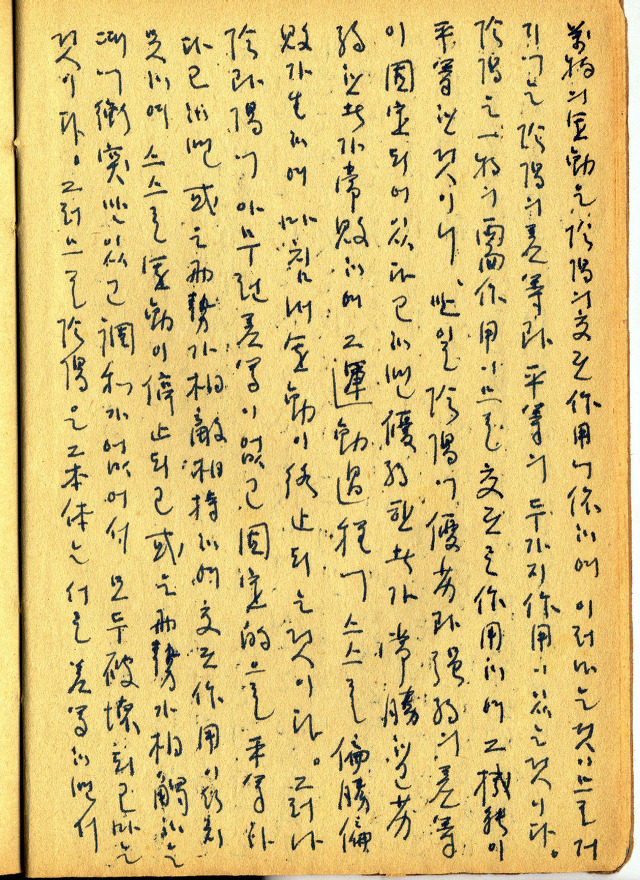 萬物의 運動은 陰陽의 交互作用에 依하여 이러나는 것이므로 거
기에는 陰陽의 差等과 平等의 두가지 作用이 있는 것이다。
陰陽은 一物의 兩面作用이므로 交互로 作用하여 그 機能이
平等한 것이니 만일 陰陽에 優劣과 强弱의 差等
이 固定되어 있다고 하면 優한 者가 常勝하고 劣
弱한 者가 常敗하여 그 運動過程에 스스로 偏勝偏
敗가 生하여 마침내 運動이 終止되는 것이다。그러나
陰과 陽에 아무런 差等이 없고 固定的으로 平等하
다고 하면 或은 兩勢가 相敵相持하여 交互作用을
못하여 스스로 運動이 停止되고 或은 兩勢가 相觸하는
때에 衝突만 있고 調和가 없어서 모두 破壞되고 마는
것이다。그러므로 陰陽은 그 本体는 서로 差等하면서